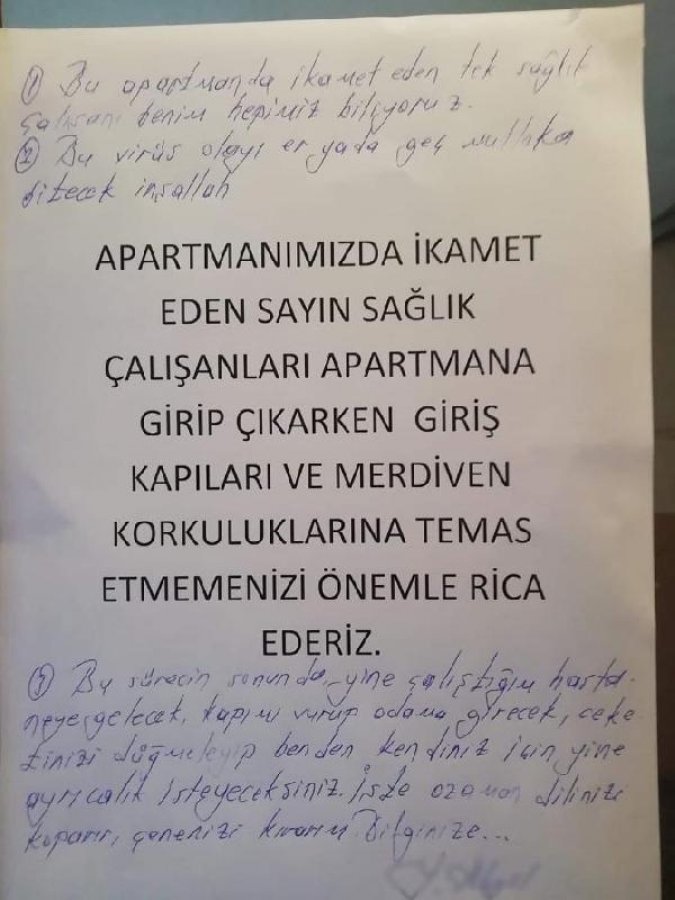 ① Bu apartmanda ikamet eden tek sağlık
çalışanı benim hepimiz biliyoruz.
② Bu virüs olayı er yada geç mutlaka
bitecek inşallah
APARTMANIMIZDA İKAMET
EDEN SAYIN SAĞLIK
ÇALIŞANLARI APARTMANA
GİRİP ÇIKARKEN GİRİŞ
KAPILARI VE MERDİVEN
KORKULUKLARINA TEMAS
ETMEMENİZİ ÖNEMLE RİCA
EDERİZ.
③ Bu sürecin sonunda yine çalıştığım hasta-
neye gelecek, kapımı vurup odama girecek, ceke
tinizi düğmeleyip benden kendiniz için yine
ayrıcalık isteyeceksiniz. İşte o zaman dilinizi
koparır, çenenizi kırarım. Bilginize...